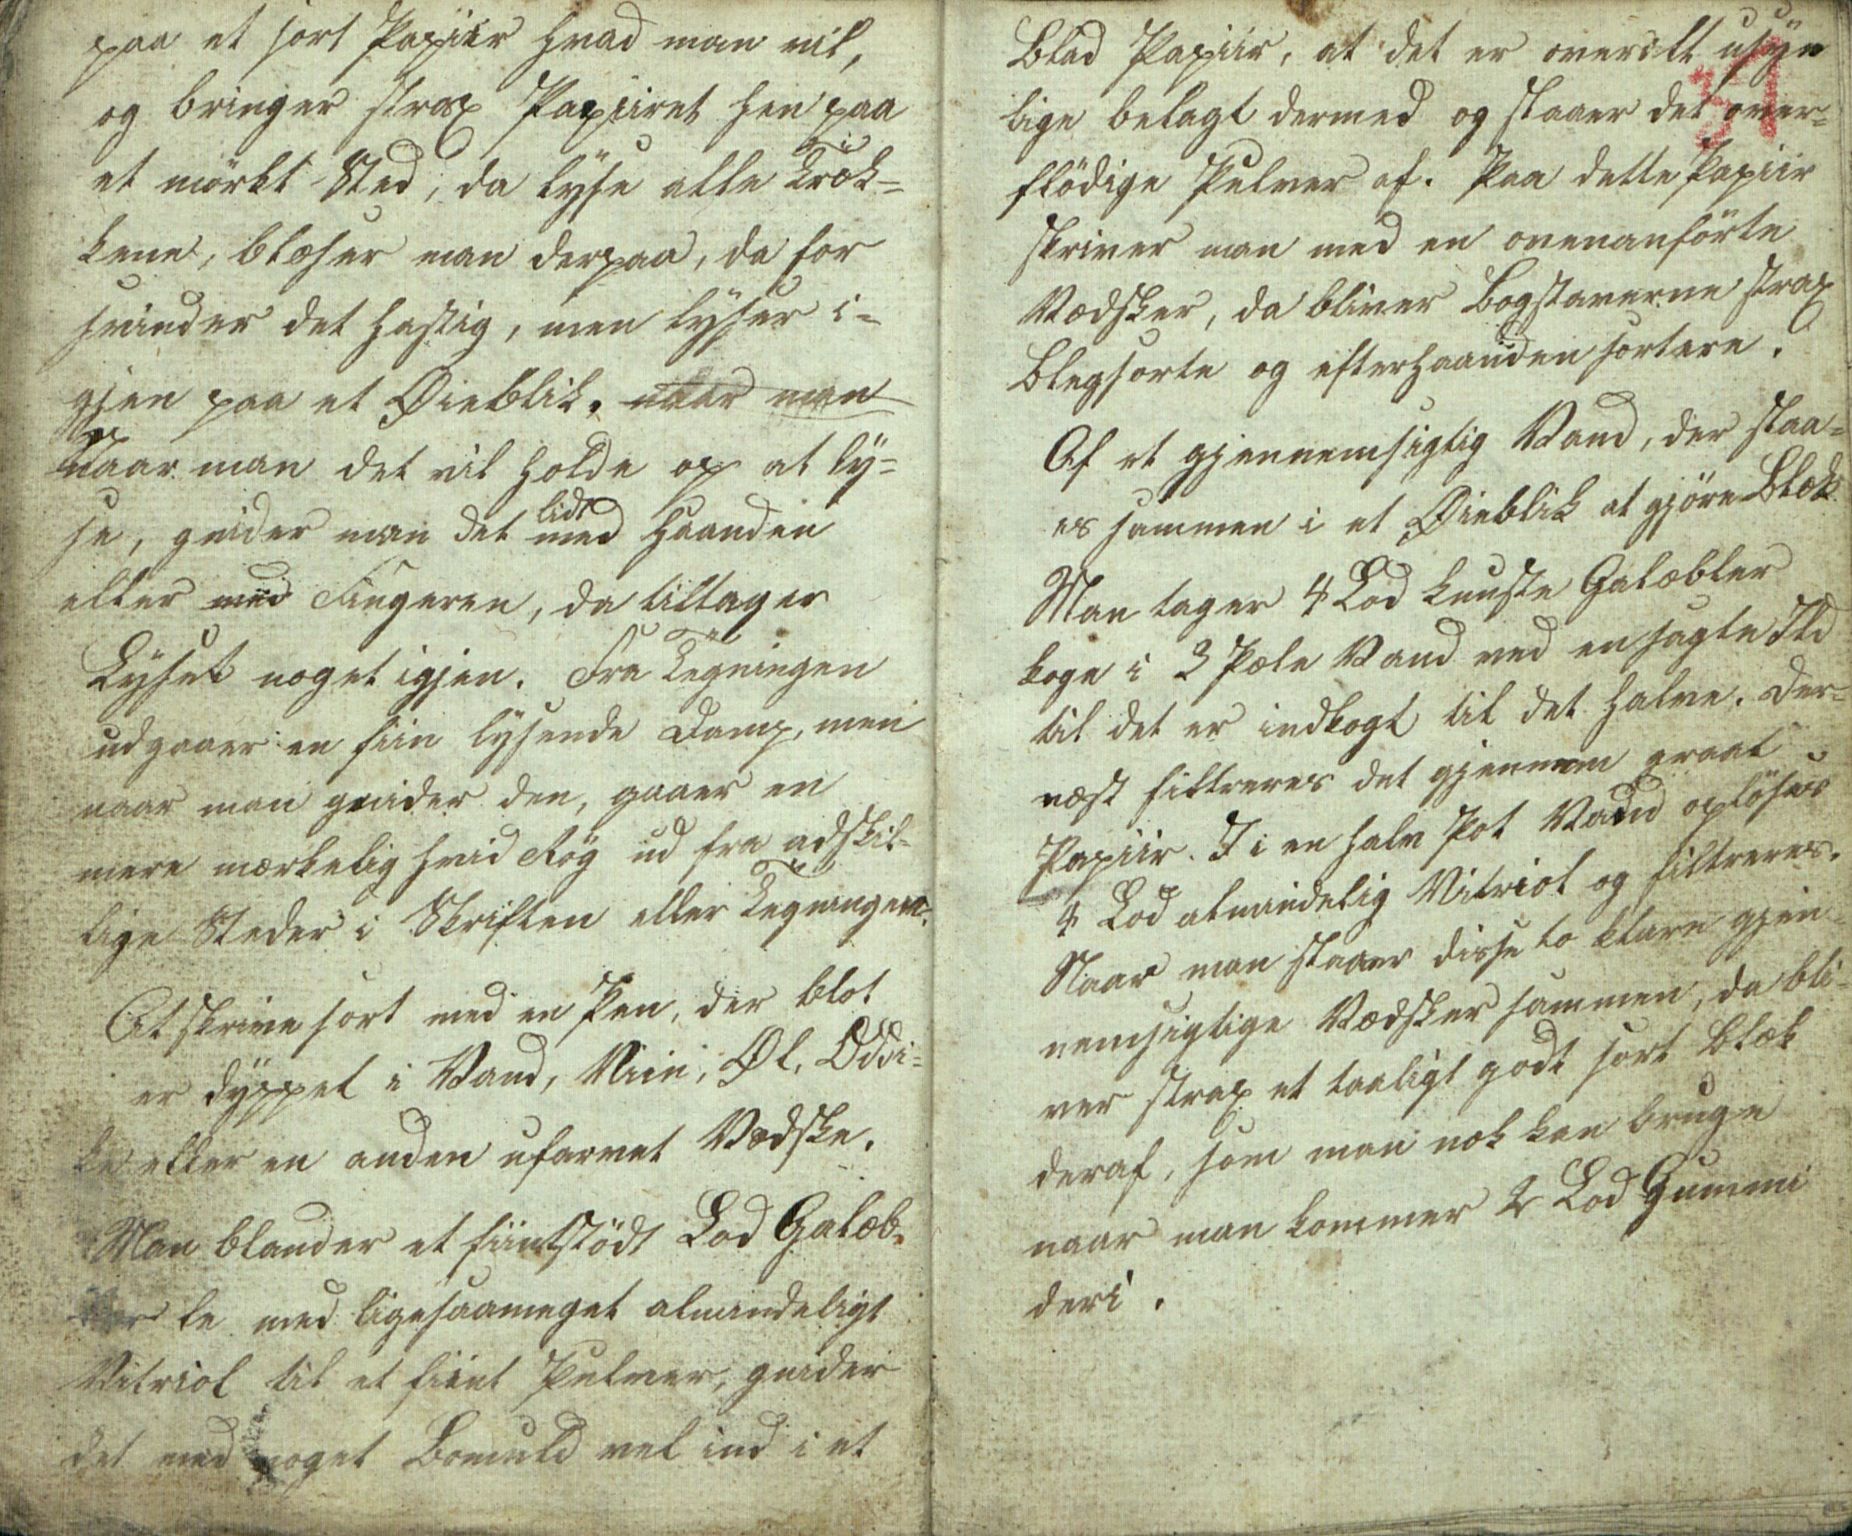 paa et sort Papiir hvad man vil,
og bringer strax Papiiret hen paa
et mörkt Sted, da lyse alle Træk-
kene, blæser man derpaa, da for
svinder det hastig, men lyser i-
gjen paa et Øieblik. naar man
Naar man det vil holde op at ly-
se, gnider man det lidt med Haanden
eller med Fingeren, da tiltager
Lyset noget igjen. Fra Tegningen
udgaaer en fiin lysende Damp, men
naar man gnider den, gaaer en
mere mærkelig hvid Røg ud fra adskil-
lige Steder i Skriften eller Tegningen.
At skrive sort med en Pen, der blot
er dyppet i Vand, Viin, Øl, Eddi-
ke eller en anden ufarvet Vædske.
Man blander et fiintstödt Lod Galæb-
le med ligesaameget almindeligt
Vitriol til et fiint Pulver, gnider
det med noget Bomuld vel ind i et
Blad Papiir, at det er overalt usÿn
lige belagt dermed og staaer det over-
flödige Pulver af. Paa dette Papiir
skriver man med en ovenanförte
Vædsker, da bliver Bogstaverne strax
blegsorte og efterhaanden sortere.
Af et gjennemsigtig Vand, der slaa-
es sammen i et Øieblik at gjöre Blæk
Man tager 4 Lod knuste Galæbler
koge i 3 Pæle Vand ved en sagte Ild
til det er indkogt til det halve. Der-
næst filtreres det gjennem graat
Papiir. I i en halv Pot Vand oplöses
4 Lod almindelig Vitriol og filtreres.
Naar man slaaer disse to klare gjen-
nemsigtige Vædsker sammen, da bli-
ver strax et taaligt godt sort Blæk
deraf, som man nok kan bruge
naar man kommer 2 Lod Gummi
deri.